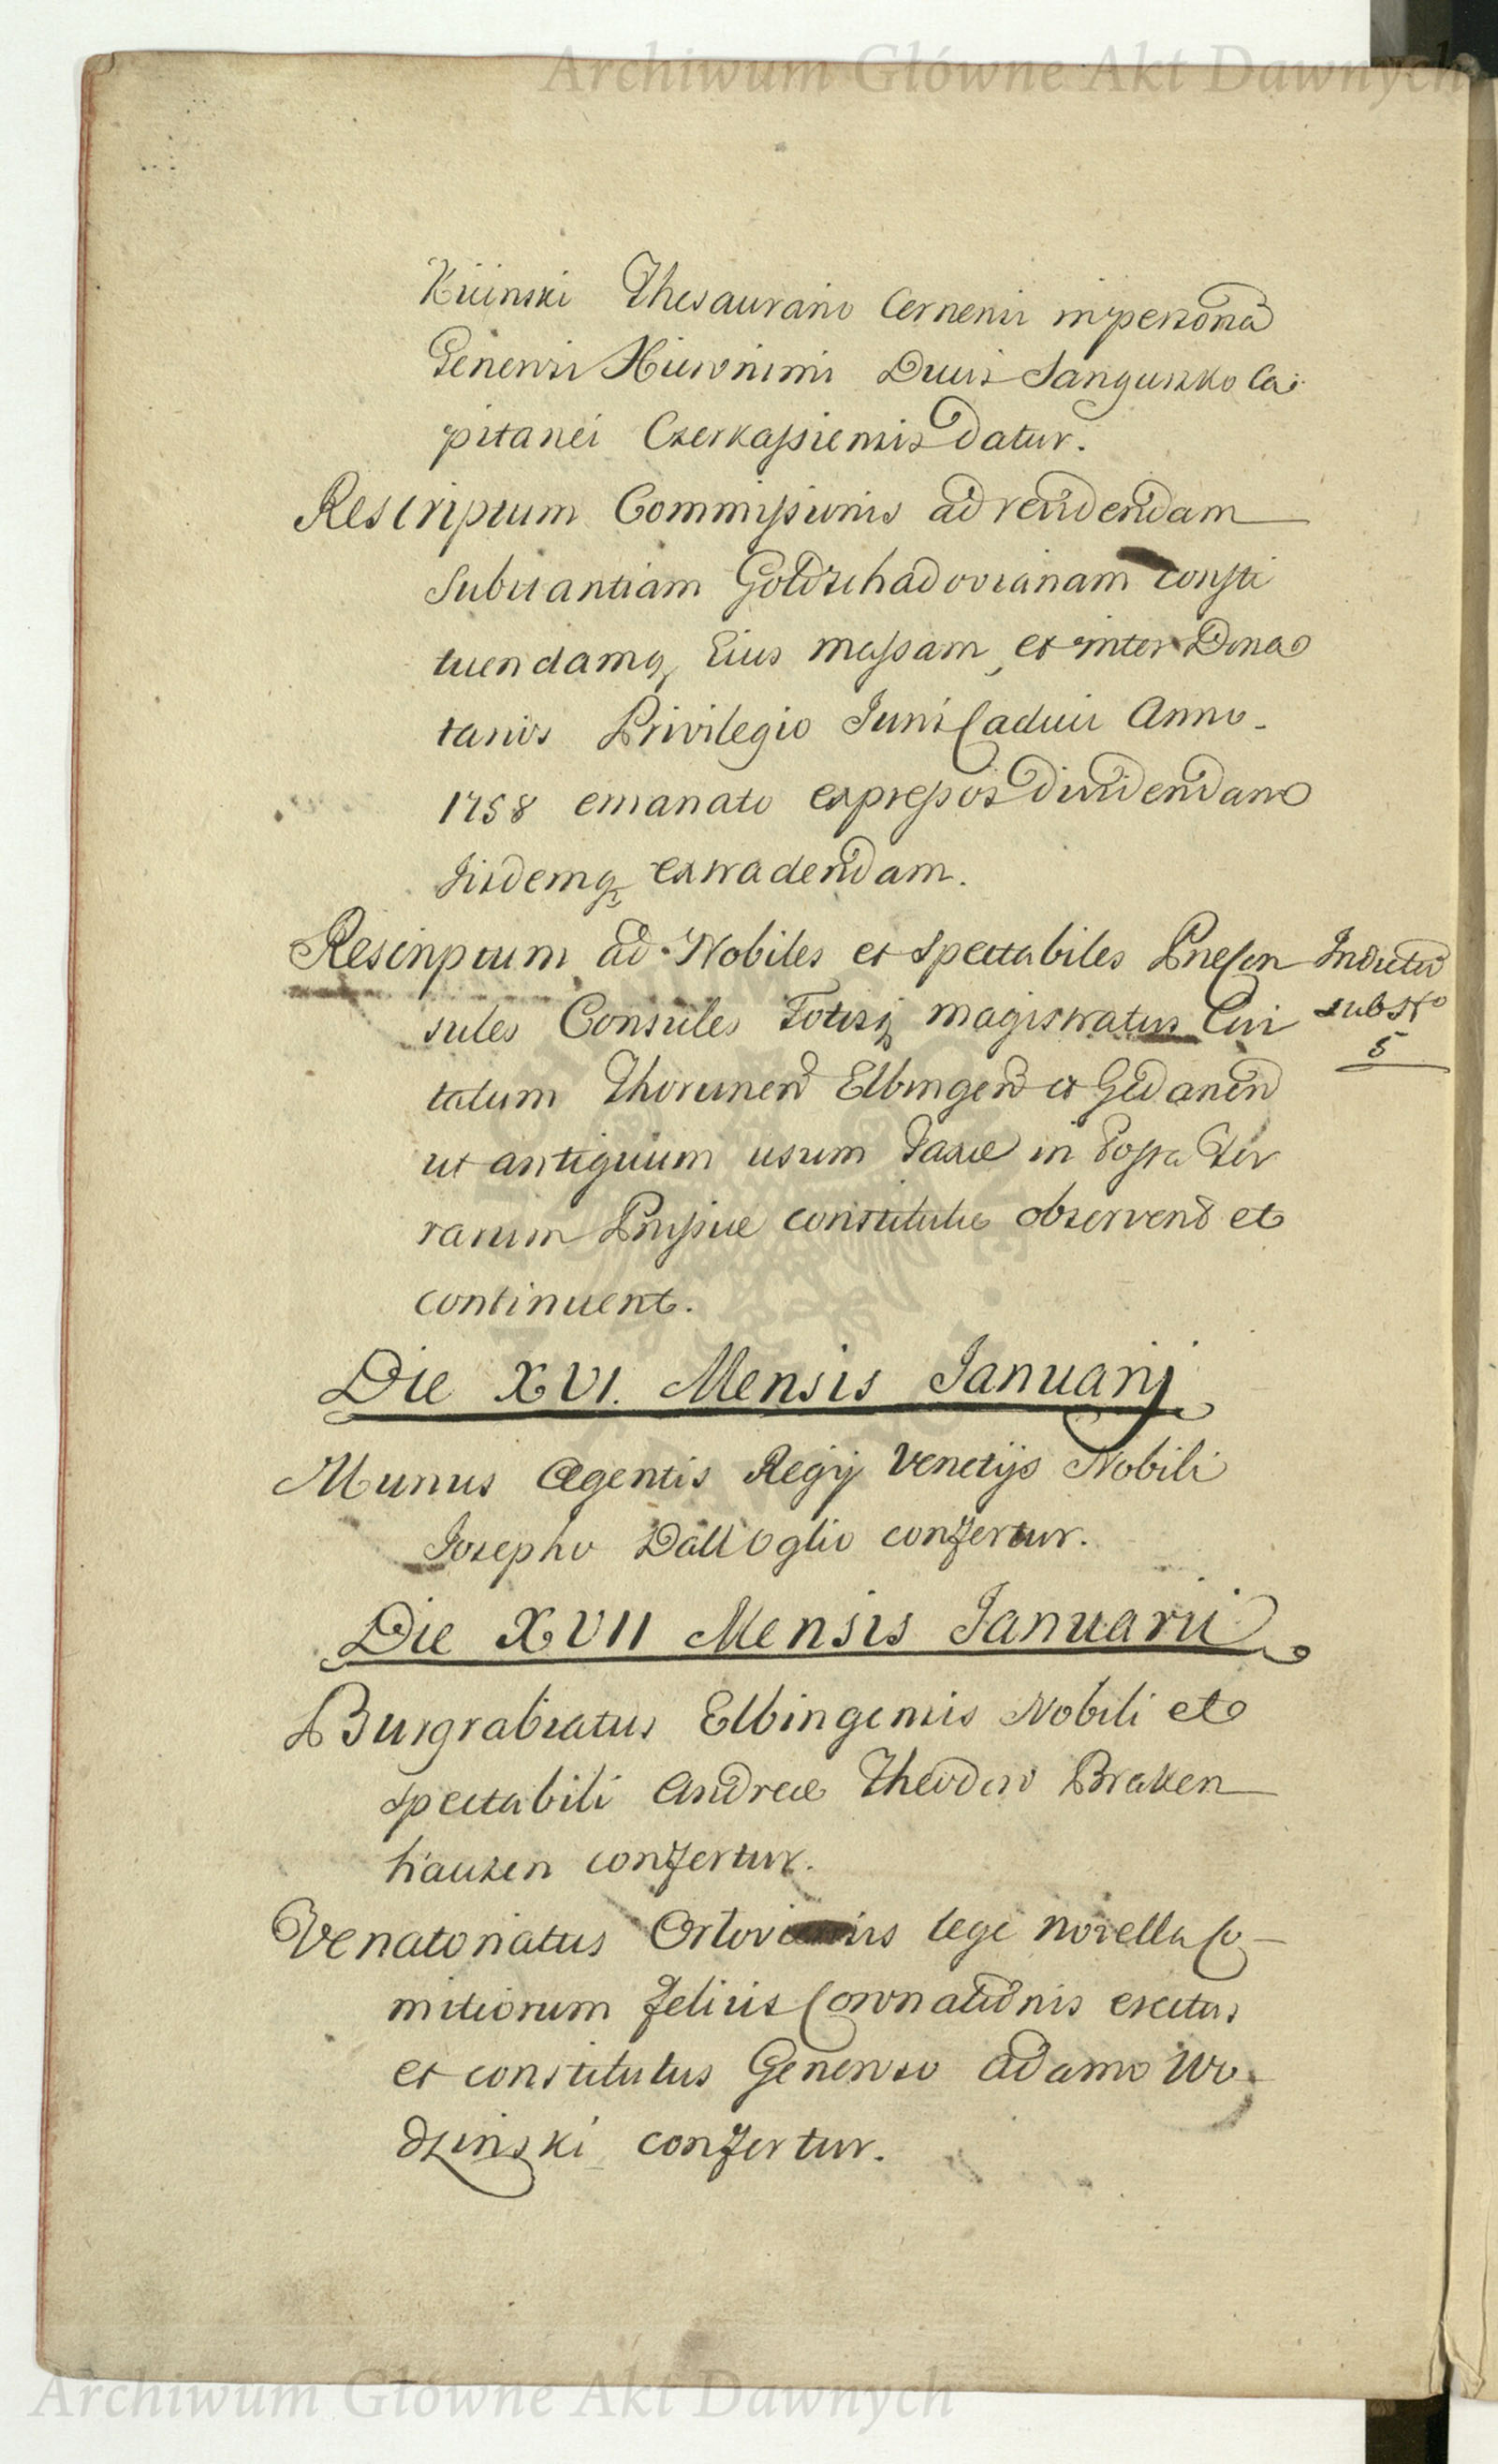 Archiwum Główne Akt Dawnych
Kicinski Thesaurario Cernenii in personā
Generosi Hieronimi Ducis Sanguszko Ca:
pitanei Czerkassiensis datur.
Rescriptum Commissionis ad revidendam
Substantiam Goldschadovianam consti
tuendamq, Eius massam, et inter Dona
tarios Privilegio Juris Caduci Anno
1758 emanato expressos dividendam
Iisdemq, extradendam.
Rescriptum ad Nobiles et Spectabiles Præcon
sules Consules Totisq magistratus Civi
tatum Thorunen Elbingen et Gedanen
ut antiquum usum Taxæ in Posta Ter
rarum Prussiæ constitutæ observent et
continuent.
Inductū
sub No
5
Die XVI. Mensis Januarij
Munus Agentis Regij Venetijs Nobili
Josepho Dall Oglio confertur.
Die XVII Mensis Januarii
Burgrabiatus Elbingensis Nobili et
Spectabili Andreæ Theodoro Braken
hausen confertur.
Venatoriatus lege novella Co
mitiorum felicis Coronationis erectus
et constitutus Generoso Adamo Wo
dzinski confertur.
Archiwum Główne Akt Dawnych